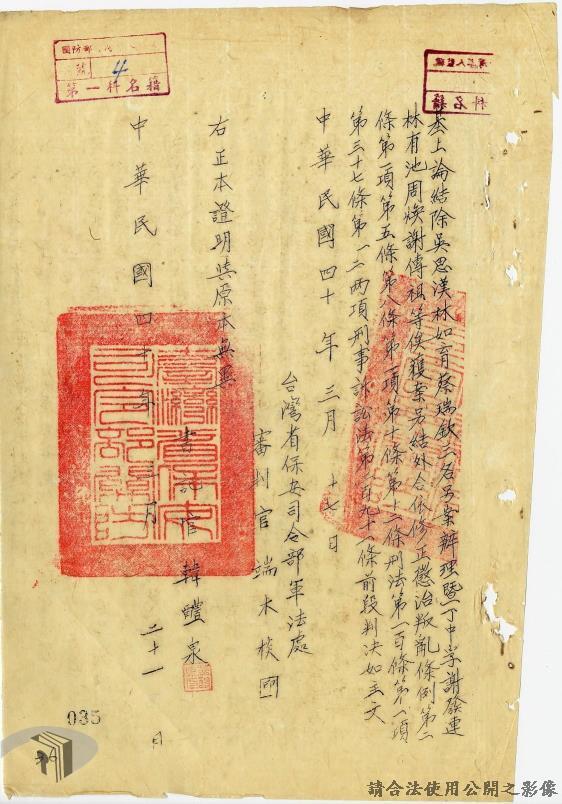 基上論結除吳思漢林如育蔡瑞欽三名另案辦理暨丁中孚謝發連
林有池周煥謝傳祖等俟獲案另結外合依修正懲治叛亂條例第二
條第一項第五條第八條第一項第十條第十二條刑法第一百條第一項
第三十七條第一二兩項刑事訴訟法第二百九十一條前段判決如主文
中華民國四十年三月十七日
台灣省保安司令部軍法處
審判官 端木棪
右正本證明與原本無異
書記官 韓醴泉
中華民國四十年 月二十一日
國防部
號 4
第一科名籍
科名籍
臺灣省保安司令部關防
035
請合法使用公開之影像